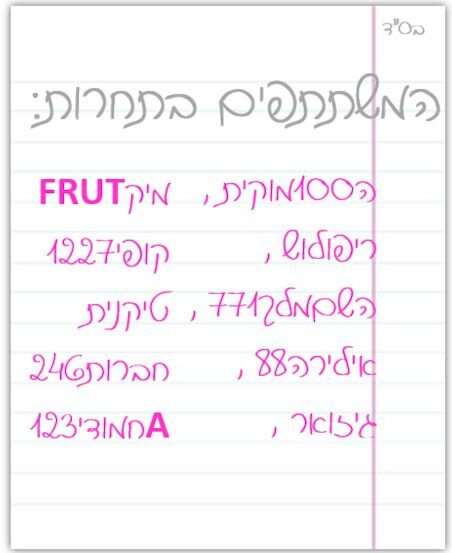 בס"ד
המשתתפים בתחרות:
ה100מוקית, מיקFRUT
ריפולוש, קופי1227
השםמלך771, טיקנית
אילירה88, חברות246
גיזואר, Aחמודי123